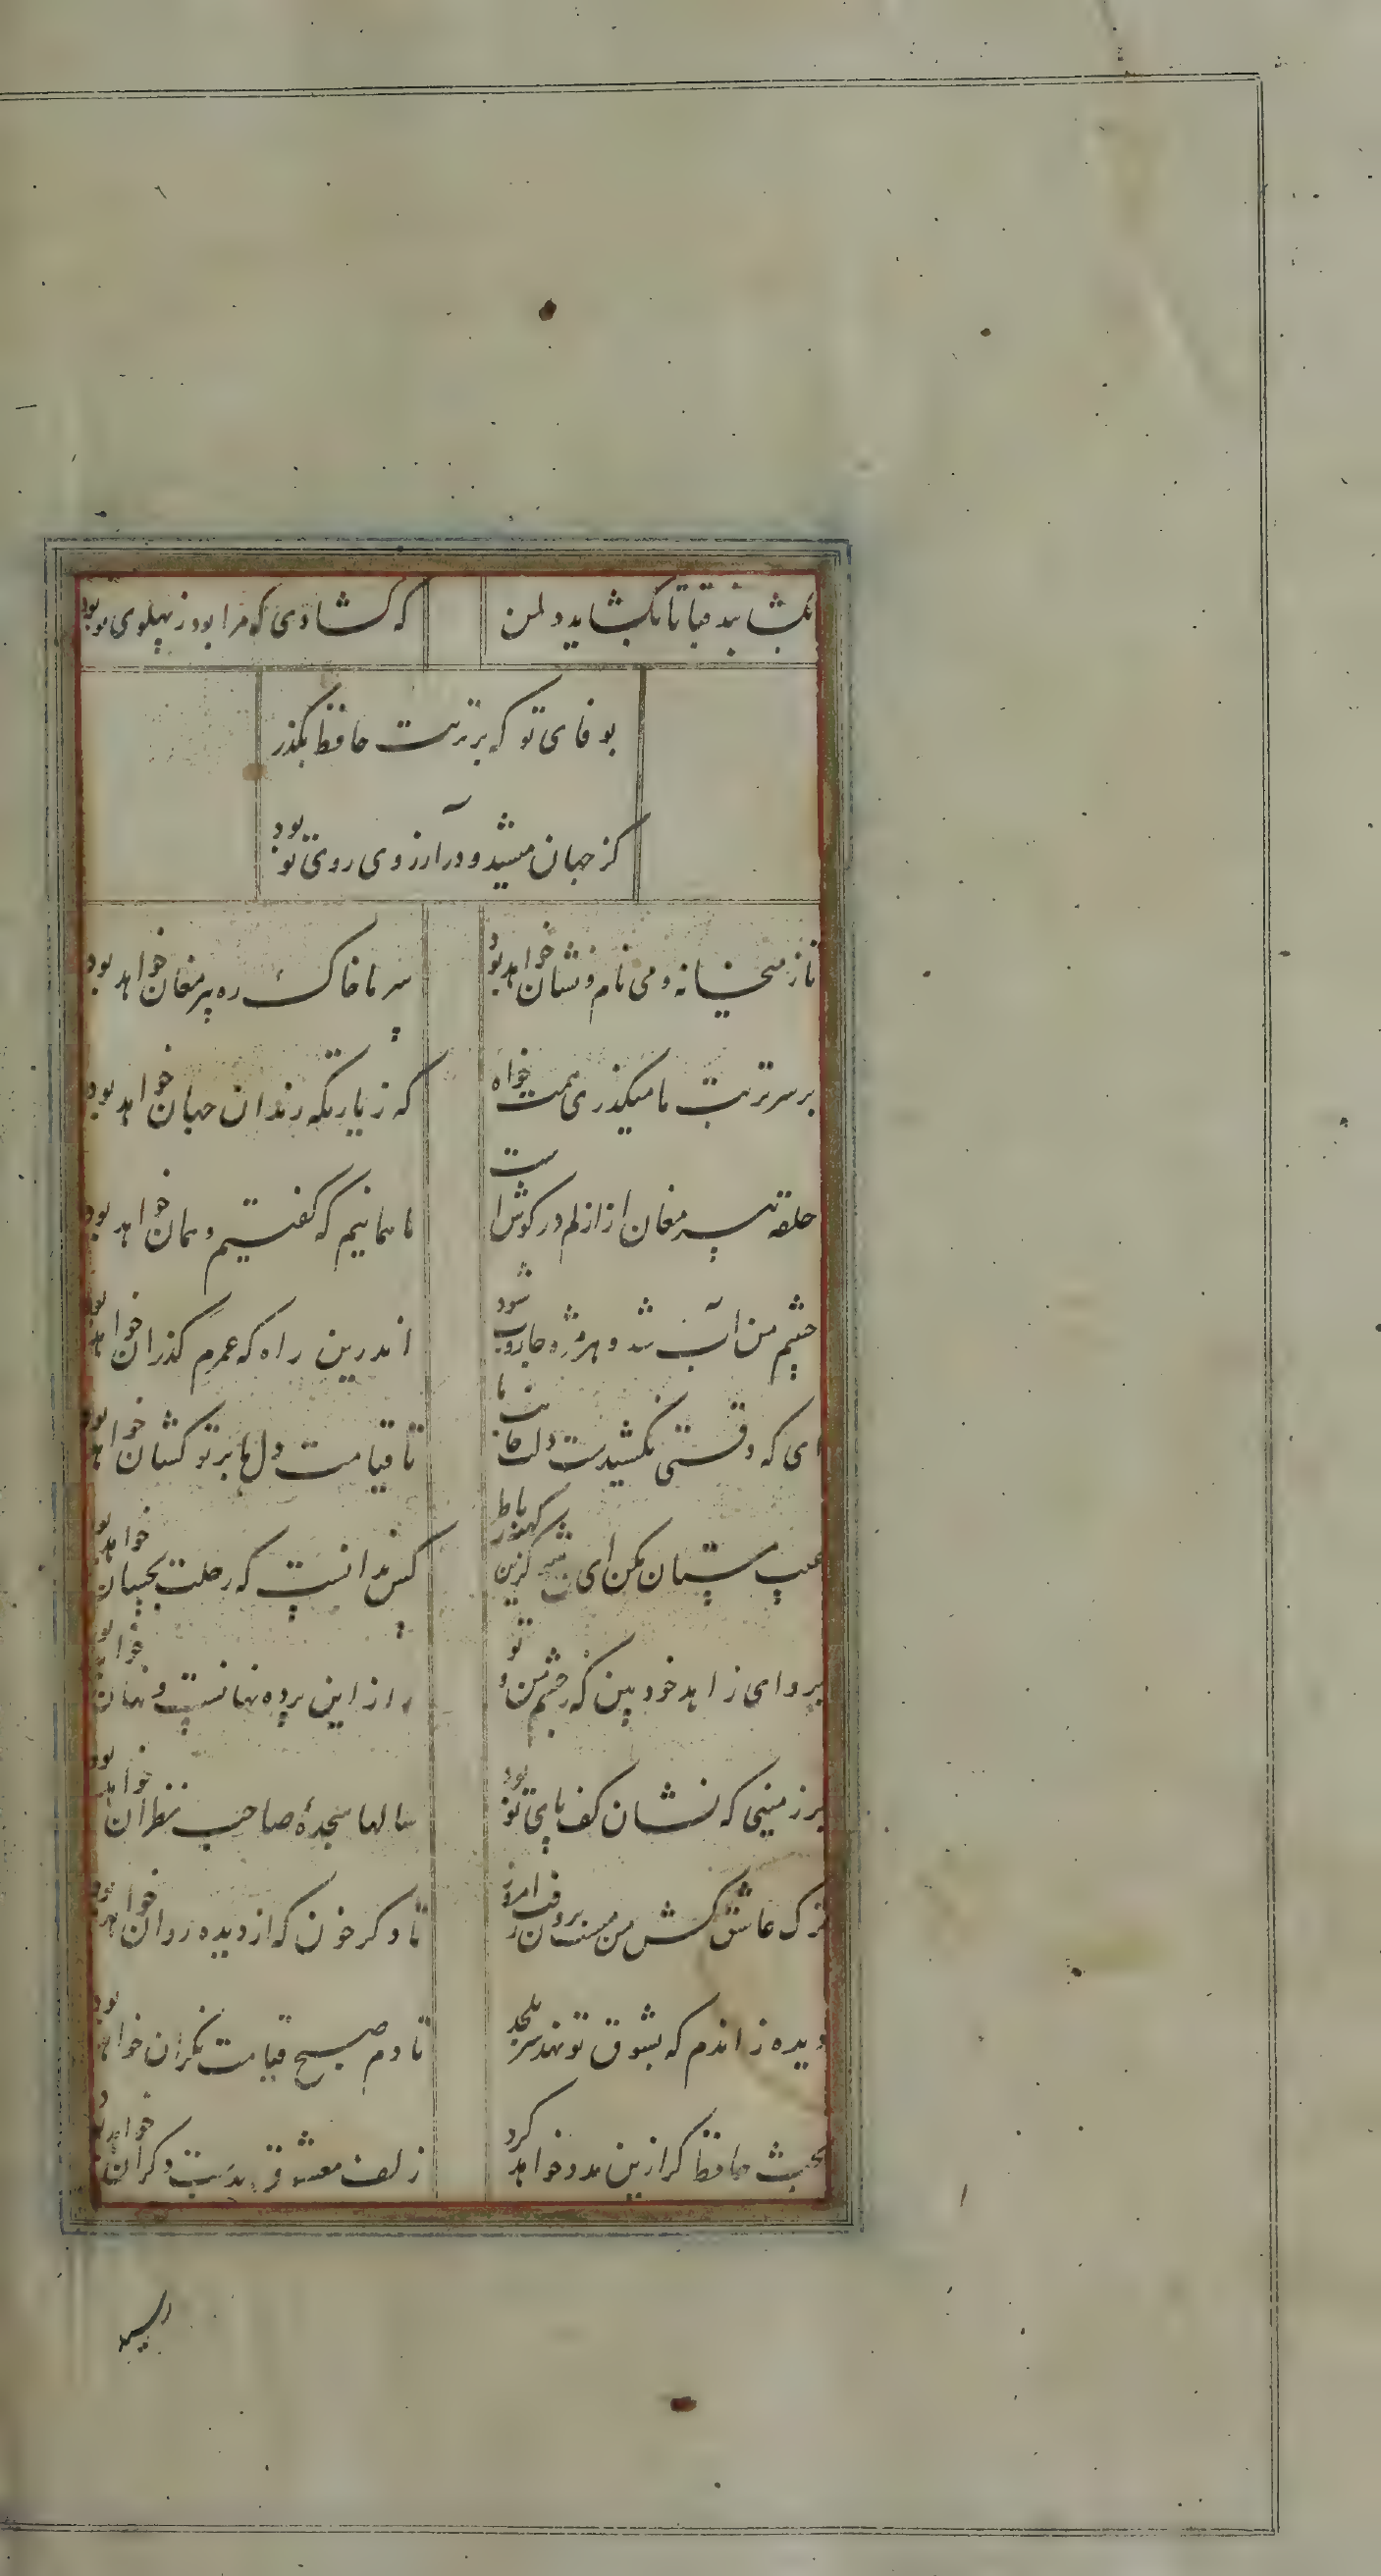 بکشا بند قبا تا بکشاید دل من
که کشادی که مرا بود ز پهلوی تو بود
بوفای تو که بر تربت حافظ بگذر
کز جهان میشد و در آرزوی روی تو بود
تا ز میخانه و می نام و نشان خواهد بود
سر ما خاک ره پیر مغان خواهد بود
بر سر تربت ما میکذری همت خواه
که زیارتکه رندان جهان خواهد بود
حلقه پیر مغان از ازلم در کوش است
ما همانیم که کفتیم و همان خواهد بود
چشم من آب شد و هر مژه جاروب شود
اندرین راه که عمرم کذران خواهد بود
ای که وقتی نکشیدت دل ما
تا قیامت دل ما بر تو کشان خواهد بود
عیب مستان مکن ای کزین کهنه رباط
کس ندانست که رحلت بچسان خواهد بود
برو ای زاهد خودبین که ز چشم من و تو
راز این پرده نهانست و نهان خواهد بود
بر زمینی که نشان کف پای تو بود
سالها سجدهٔ صاحب نظران خواهد بود
ترک عاشق کش من مست برون رفت امروز
تا دکر خون که از دیده روان خواهد بود
دیده ز اندم که بشوق تو نهد سر بلحد
تا دم صبح قیامت نکران خواهد بود
بخت حافظ کر ازین مدد خواهد کرد
زلف معشوقه بدست دکران خواهد بود